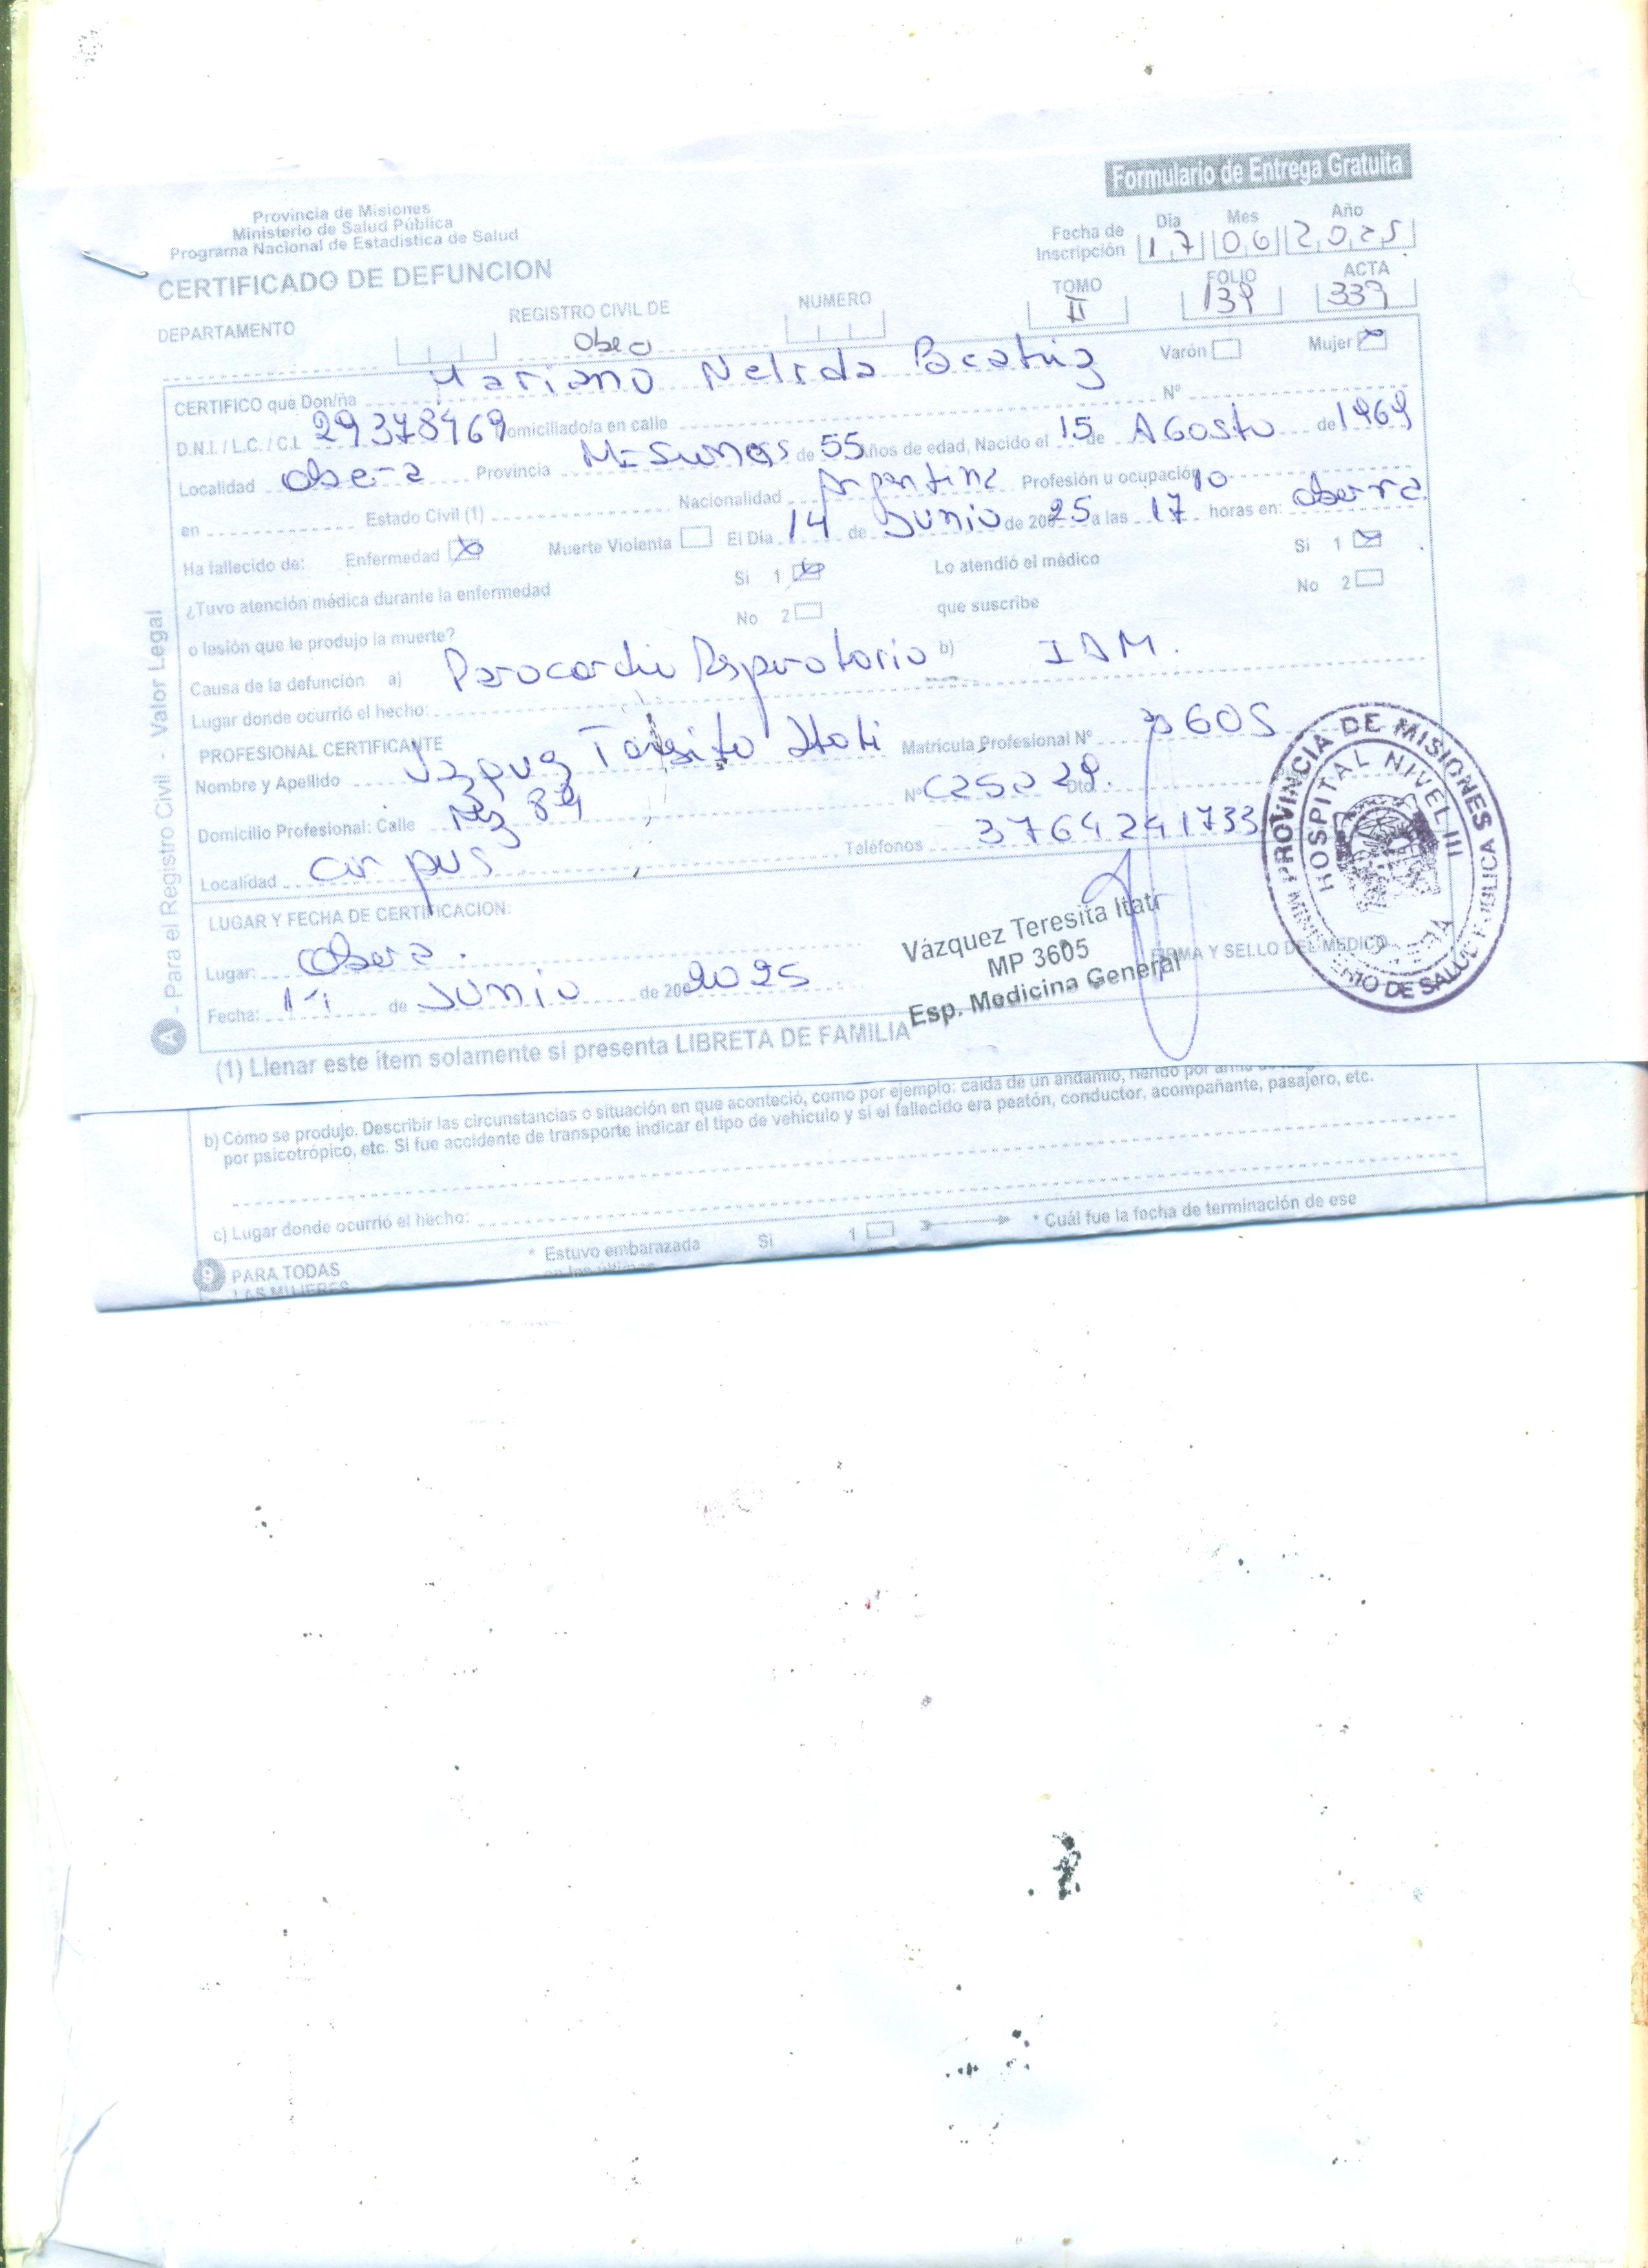 Formulario de Entrega Gratuita
Provincia de Misiones
Ministerio de Salud Pública
Programa Nacional de Estadística de Salud
CERTIFICADO DE DEFUNCION
Fecha de Inscripción Día 17 Mes 06 Año 2025
DEPARTAMENTO REGISTRO CIVIL DE NUMERO TOMO II FOLIO 139 ACTA 339
CERTIFICO que Don/ña Mariano Nelida Beatriz Varón Mujer
D.N.I. / L.C. / C.I. 29378969 Domiciliado/a en calle Nº
Localidad Obera Provincia Misiones de 55 años de edad, Nacido el 15 de Agosto de 1969
en Estado Civil (1) Nacionalidad Argentina Profesión u ocupación
Ha fallecido de: Enfermedad Muerte Violenta El Día 14 de Junio de 200 25 a las 17 horas en: Oberra
¿Tuvo atención médica durante la enfermedad Si 1 Lo atendió el médico Si 1
o lesión que le produjo la muerte? No 2 que suscribe No 2
Causa de la defunción a) Parocardio Respiratorio b) IAM.
Lugar donde ocurrió el hecho:
PROFESIONAL CERTIFICANTE
Nombre y Apellido Teresita Itati Matrícula Profesional Nº 3605
Domicilio Profesional: Calle Nº Dto
Localidad Teléfonos 3764241733
LUGAR Y FECHA DE CERTIFICACION:
Lugar: Obera.
Fecha: 14 de Junio de 200 2025
Vázquez Teresita Itati
MP 3605
Esp. Medicina General
FIRMA Y SELLO DEL MEDICO
PROVINCIA DE MISIONES
HOSPITAL NIVEL III
MINISTERIO DE SALUD PUBLICA
(1) Llenar este item solamente si presenta LIBRETA DE FAMILIA
A - Para el Registro Civil - Valor Legal
b) Cómo se produjo. Describir las circunstancias o situación en que aconteció, como por ejemplo: caída de un andamio, herido por
por psicotrópico, etc. Si fue accidente de transporte indicar el tipo de vehículo y si el fallecido era peatón, conductor, acompañante, pasajero, etc.
c) Lugar donde ocurrió el hecho:
9 PARA TODAS * Estuvo embarazada Si 1 * Cuál fue la fecha de terminación de ese
LAS MUJERES